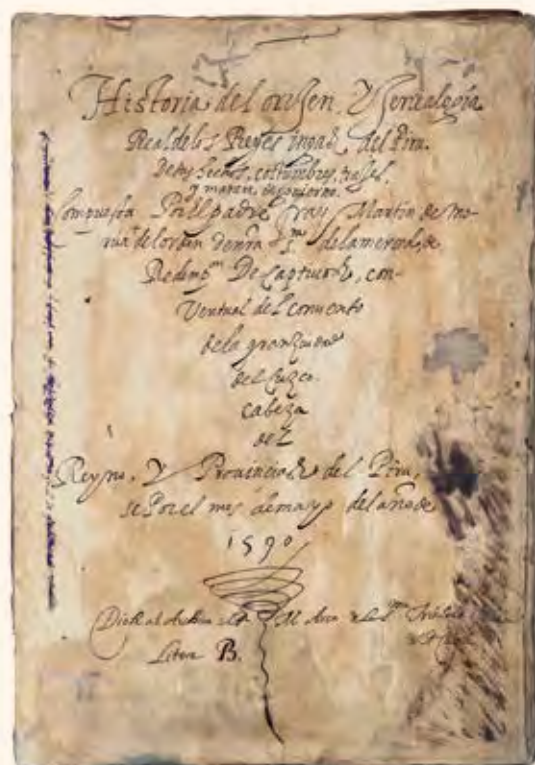 Historia del origen, Y Genealogía
Real de los Reyes ingas del Piru.
De sus hechos, costumbres, trajes,
y manera de gouierno.
Compuesta Por El padre fray Martin de Mo-
rua del orden de nra sra de la merced, de
Redempon De captiuos, con-
Ventual del conuento
de la gran ciudad
del Cuzco.
cabeza
del
Reyno, Y Prouincias del Piru,
por el mes de mayo del año de
1590
Litera B.